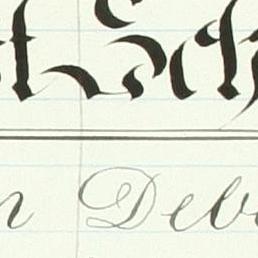 t Sch
n Deb